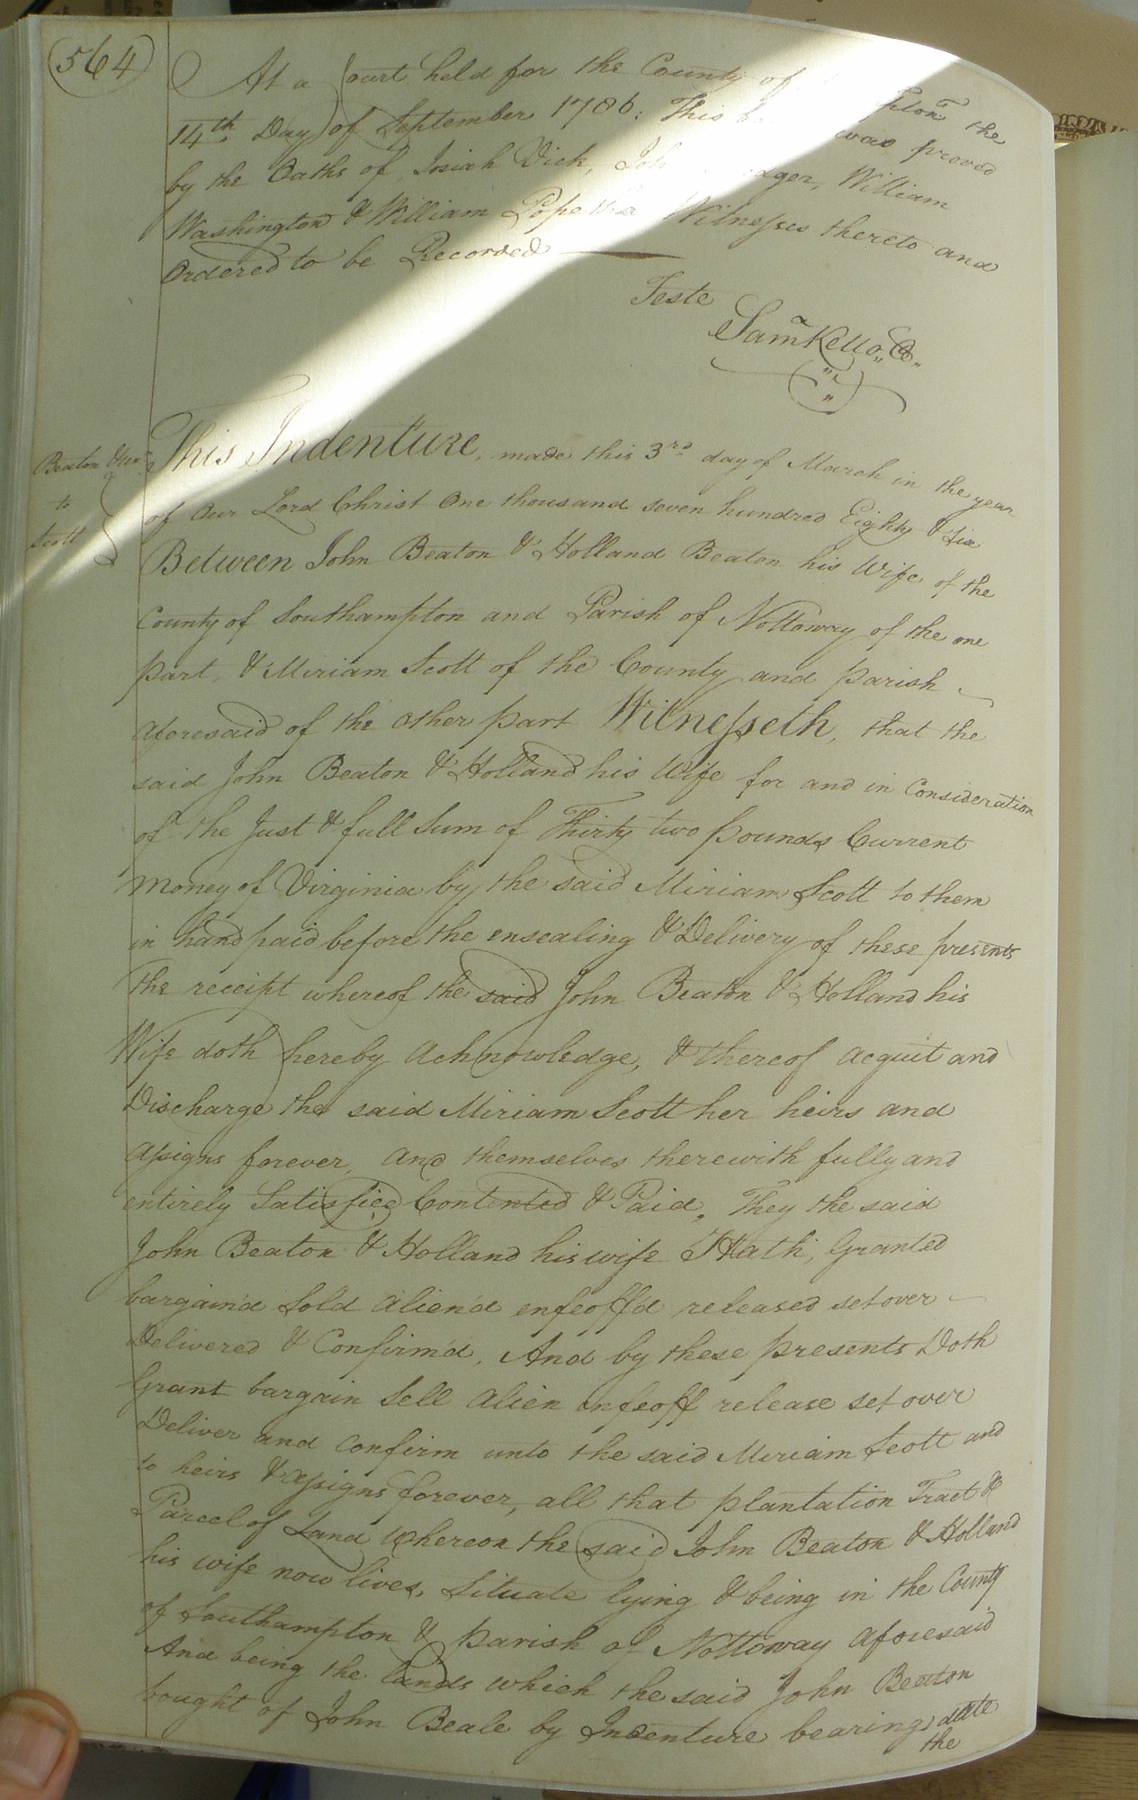 564
At a Court held for the County of the
14th Day of September 1786. This was proved
by the Oaths of Josiah Vick, William
Washington & William Pope the Witnesses thereto and
Ordered to be Recorded
Teste
Saml Kello, C.
Beaton & ux
to
Scott
This Indenture, made this 3rd day of March in the year
of Our Lord Christ One thousand seven hundred Eighty & Six
Between John Beaton & Holland Beaton his Wife of the
County of Southampton and Parish of Nottoway of the one
part, & Miriam Scott of the County and parish
aforesaid of the other part Witnesseth, that the
said John Beaton & Holland his Wife for and in Consideration
of the Just & full Sum of Thirty two pounds Current
money of Virginia by the said Miriam Scott to them
in hand paid before the ensealing & Delivery of these presents
the receipt whereof the said John Beaton & Holland his
Wife doth hereby Acknowledge, & thereof acquit and
Discharge the said Miriam Scott her heirs and
assigns forever, and themselves therewith fully and
entirely Satisfied Contented & Paid. They the said
John Beaton & Holland his wife Hath, Granted
bargain'd Sold Alien'd enfeoff'd released set over
Delivered & Confirm'd, And by these presents Doth
Grant bargain Sell Alien enfeoff release set over
Deliver and Confirm unto the said Miriam Scott and
to heirs & assigns forever, all that plantation Tract &
Parcel of Land whereon the said John Beaton & Holland
his wife now lives, Situate lying & being in the County
of Southampton & parish of Nottoway aforesaid
And being the lands which the said John Beaton
bought of John Beale by Indenture bearing date
the